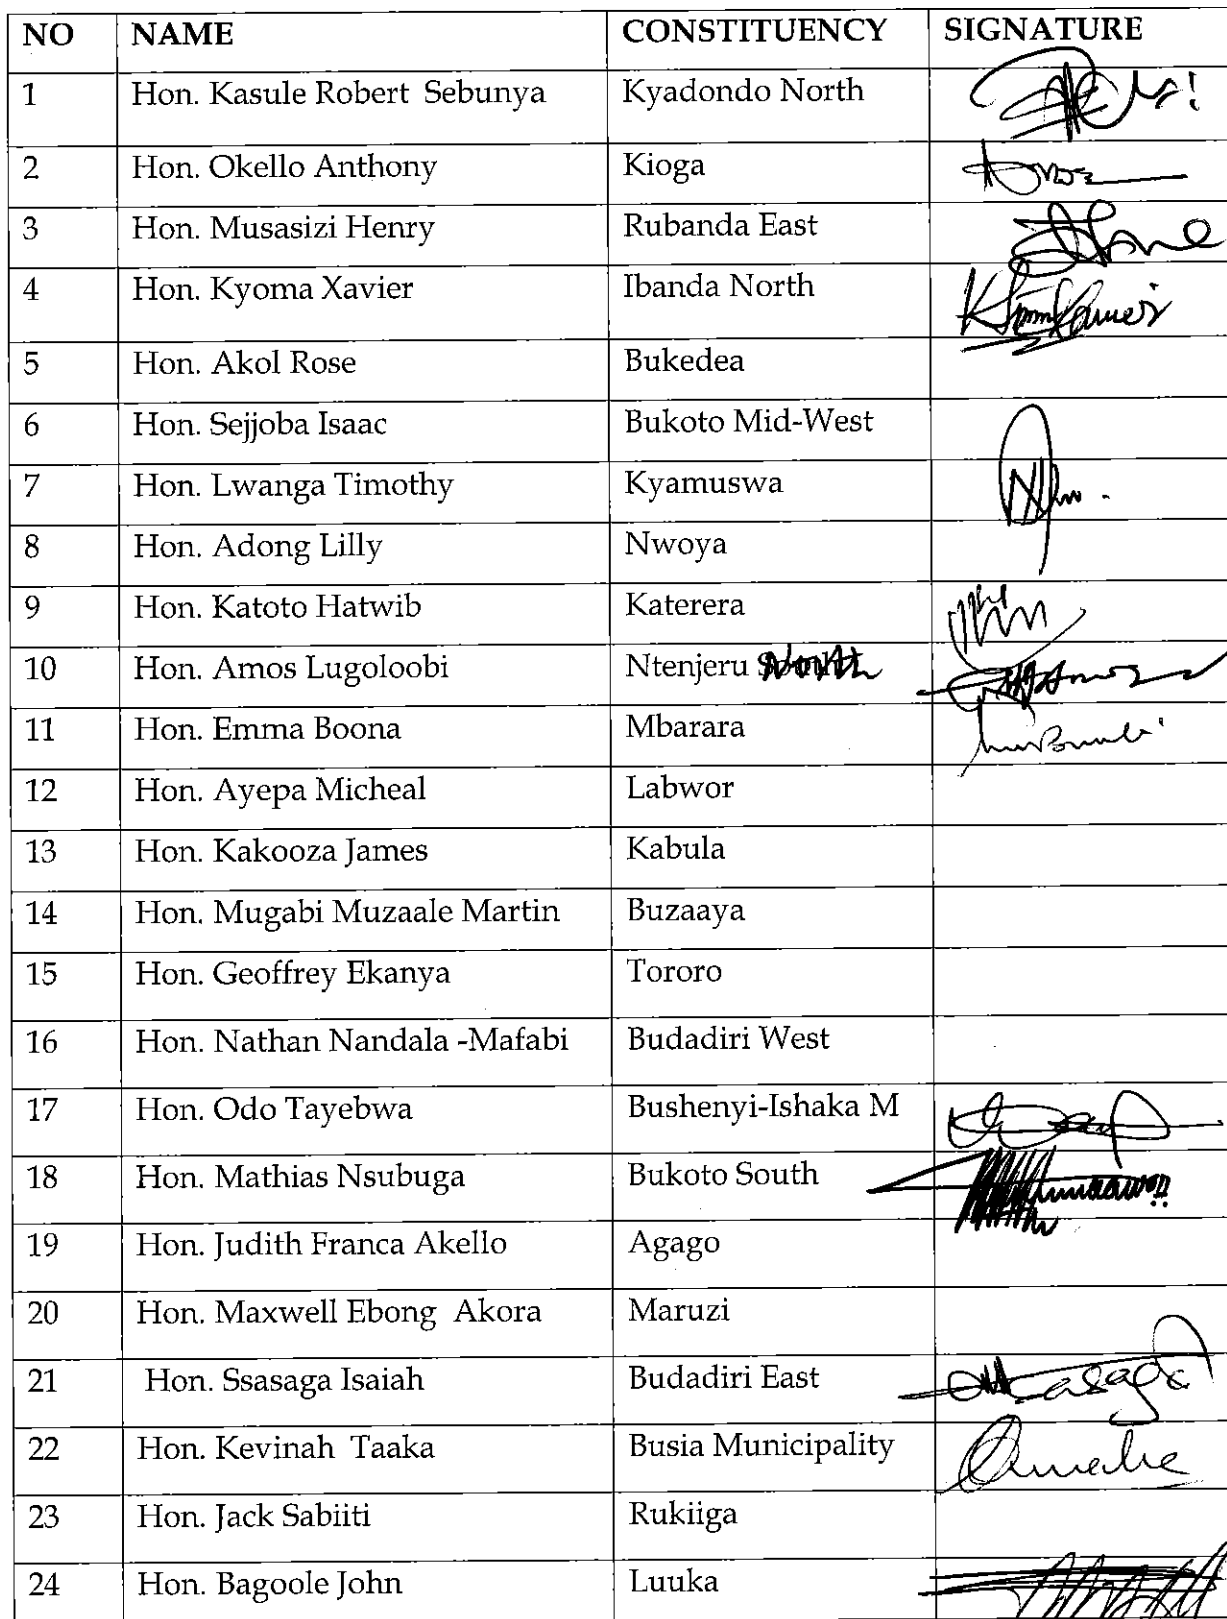 NO NAME CONSTITUENCY SIGNATURE
1 Hon. Kasule Robert Sebunya Kyadondo North
2 Hon. Okello Anthony Kioga
3 Hon. Musasizi Henry Rubanda East
4 Hon. Kyoma Xavier Ibanda North
5 Hon. Akol Rose Bukedea
6 Hon. Sejjoba Isaac Bukoto Mid-West
7 Hon. Lwanga Timothy Kyamuswa
8 Hon. Adong Lilly Nwoya
9 Hon. Katoto Hatwib Katerera
10 Hon. Amos Lugoloobi Ntenjeru North
11 Hon. Emma Boona Mbarara
12 Hon. Ayepa Micheal Labwor
13 Hon. Kakooza James Kabula
14 Hon. Mugabi Muzaale Martin Buzaaya
15 Hon. Geoffrey Ekanya Tororo
16 Hon. Nathan Nandala -Mafabi Budadiri West
17 Hon. Odo Tayebwa Bushenyi-Ishaka M
18 Hon. Mathias Nsubuga Bukoto South
19 Hon. Judith Franca Akello Agago
20 Hon. Maxwell Ebong Akora Maruzi
21 Hon. Ssasaga Isaiah Budadiri East
22 Hon. Kevinah Taaka Busia Municipality
23 Hon. Jack Sabiiti Rukiiga
24 Hon. Bagoole John Luuka